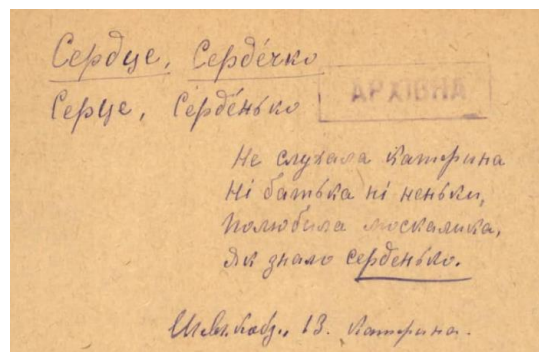 Сердце, Серде́чко
АРХІВНА
Серце, Се́рде́нько
Не слухала Катерина
Ні батька ні неньки,
Полюбила москалика,
Як знало серденько.
Шевч. Кобз., 13. Катерина.